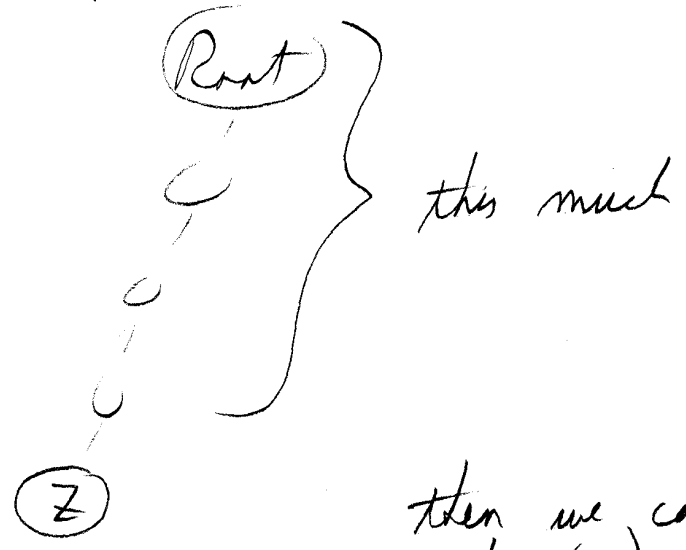 Root
this much
Z
then we